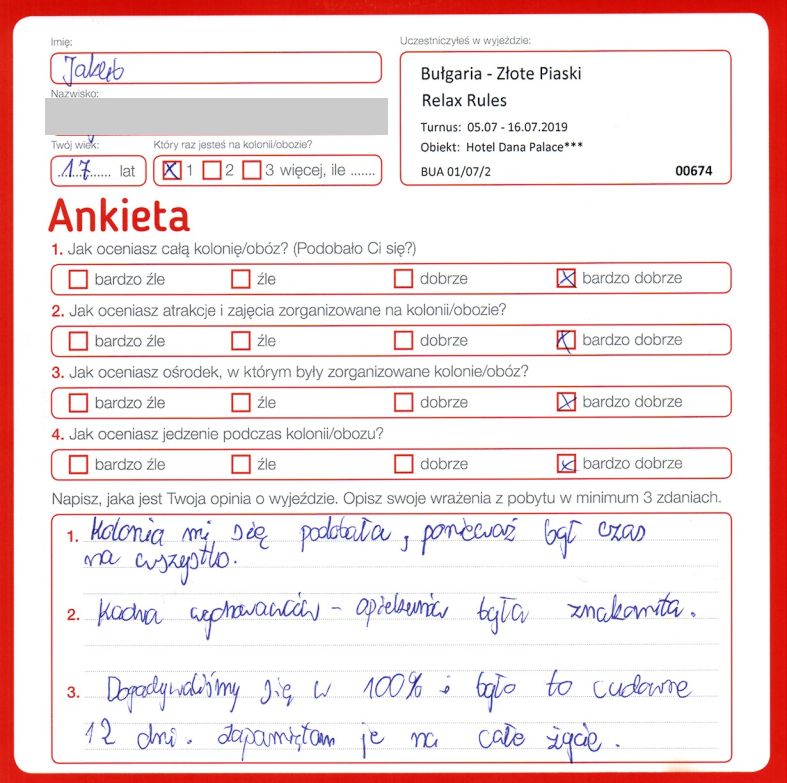 Imię:
Jakub
Uczestniczyłeś w wyjeździe:
Bułgaria - Złote Piaski
Relax Rules
Turnus: 05.07 - 16.07.2019
Obiekt: Hotel Dana Palace***
BUA 01/07/2
00674
Nazwisko:
Twój wiek:
17 lat
Który raz jesteś na kolonii/obozie?
1 2 3 więcej, ile .......
Ankieta
1. Jak oceniasz całą kolonię/obóz? (Podobało Ci się?)
bardzo źle źle dobrze bardzo dobrze
2. Jak oceniasz atrakcje i zajęcia zorganizowane na kolonii/obozie?
bardzo źle źle dobrze bardzo dobrze
3. Jak oceniasz ośrodek, w którym były zorganizowane kolonie/obóz?
bardzo źle źle dobrze bardzo dobrze
4. Jak oceniasz jedzenie podczas kolonii/obozu?
bardzo źle źle dobrze bardzo dobrze
Napisz, jaka jest Twoja opinia o wyjeździe. Opisz swoje wrażenia z pobytu w minimum 3 zdaniach.
1. Kolonia mi się podobała, ponieważ był czas
na wszystko.
2. Kadra wychowawców - opiekunów była znakomita.
3. Dogadywaliśmy się w 100% i było to cudowne
12 dni. Zapamiętam je na całe życie.